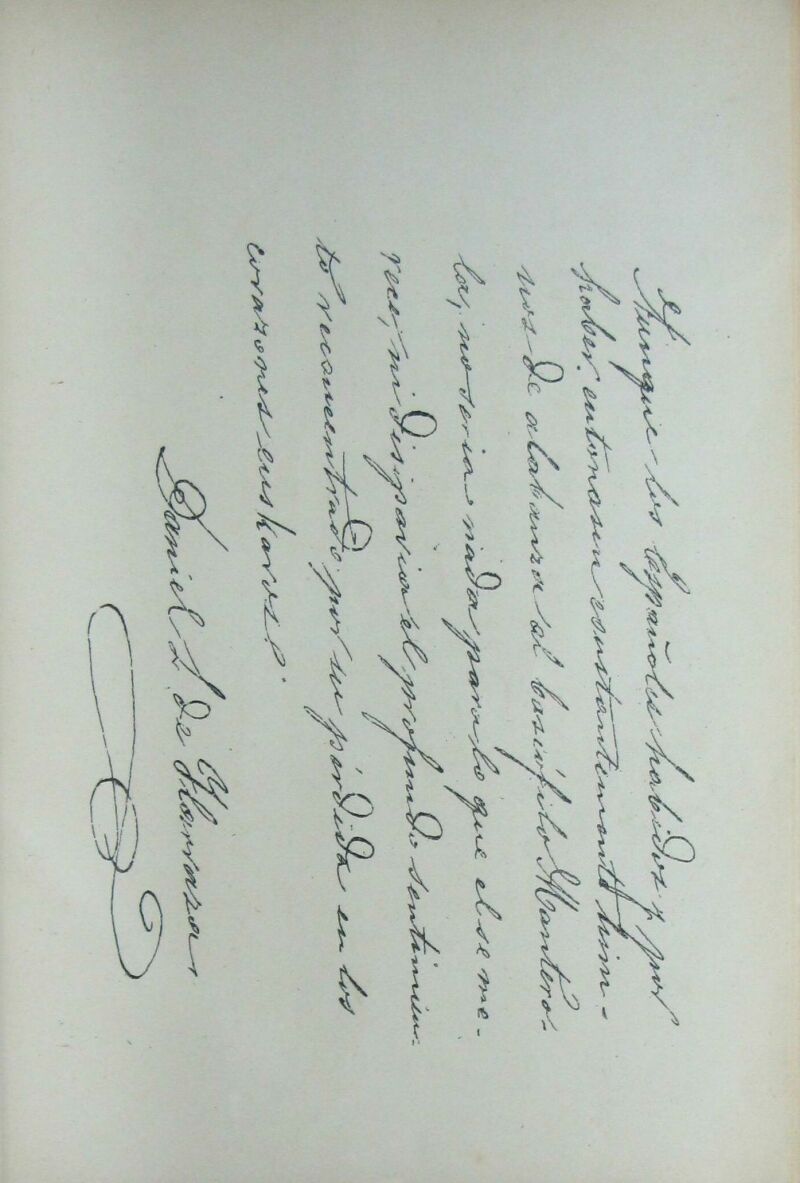 Aunque los Españoles habidos y por
haber entonasen constantemente him-
nos de alabanza al basiófilo Mantero-
la, no seria nada para lo que el se me-
rece, ni disiparia el profundo sentimien-
to reconcentrado por su pérdida en los
corazones euskaros.
Daniel L. de Ilarraza,